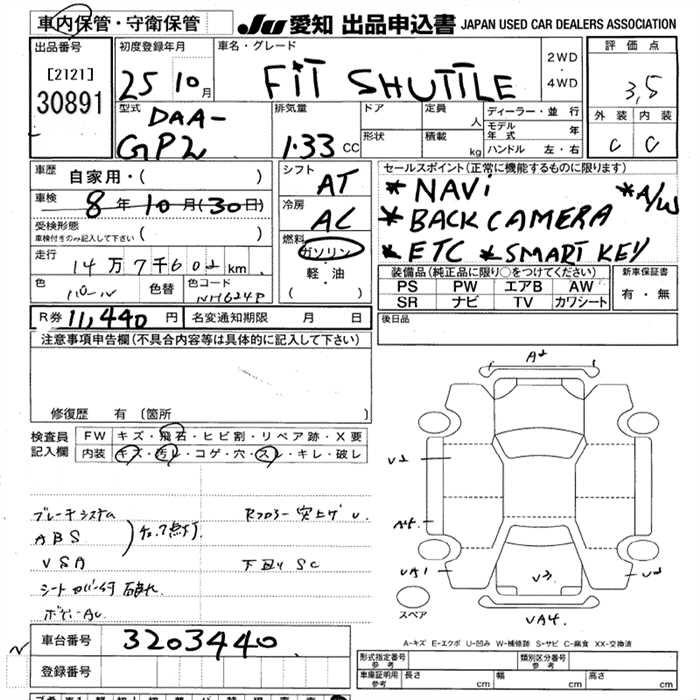 車内保管・守衛保管 JU 愛知 出品申込書 JAPAN USED CAR DEALERS ASSOCIATION
出品番号 初度登録年月 車名・グレード 2WD ・ 4WD 評価点
[2121] 25 10月 FIT SHUTTLE 3,5
30891 型式 排気量 ドア 定員 人 ディーラー・並行 外装 内装
DAA- 形状 積載 kg モデル年式 年 C C
GP2 1.33 CC ハンドル 左・右
車歴 自家用・( ) シフト AT セールスポイント(正常に機能するものに限ります)
車検 8年10月(30日) 冷房 AC *NAVi *A/W
受検形態 車検付きのみ記入して下さい ( ) *BACK CAMERA
走行 14万7千602km 燃料 ガソリン・軽・油 ( ) *ETC *SMART KEY
色 パール 色替 色コード NH624P 装備品(純正品に限り○をつけてください) 新車保証書
PS PW エアB AW 有・無
SR ナビ TV カワシート
R券 11,440円 名変通知期限 月 日 後日品
注意事項申告欄(不具合内容等は具体的に記入して下さい)
修復歴 有 (箇所 )
検査員 FW キズ・飛石・ヒビ割・リペア跡・X要
記入欄 内装 キズ・汚レ・コゲ・穴・スレ・キレ・破レ
A2
V2
ブレーキシステム Rフロアー突上げ U
ABS チェック点灯
VSA 下廻り SC
A5
VA1
V3
VA4.
スペア
A-キズ E-エクボ U-凹み W-補修跡 S-サビ C-腐食 XX-交換済
車台番号 3203440
登録番号
形式指定番号 参考 類別区分番号 参考
車庫証明用 参考 長さ cm 幅 cm 高さ cm